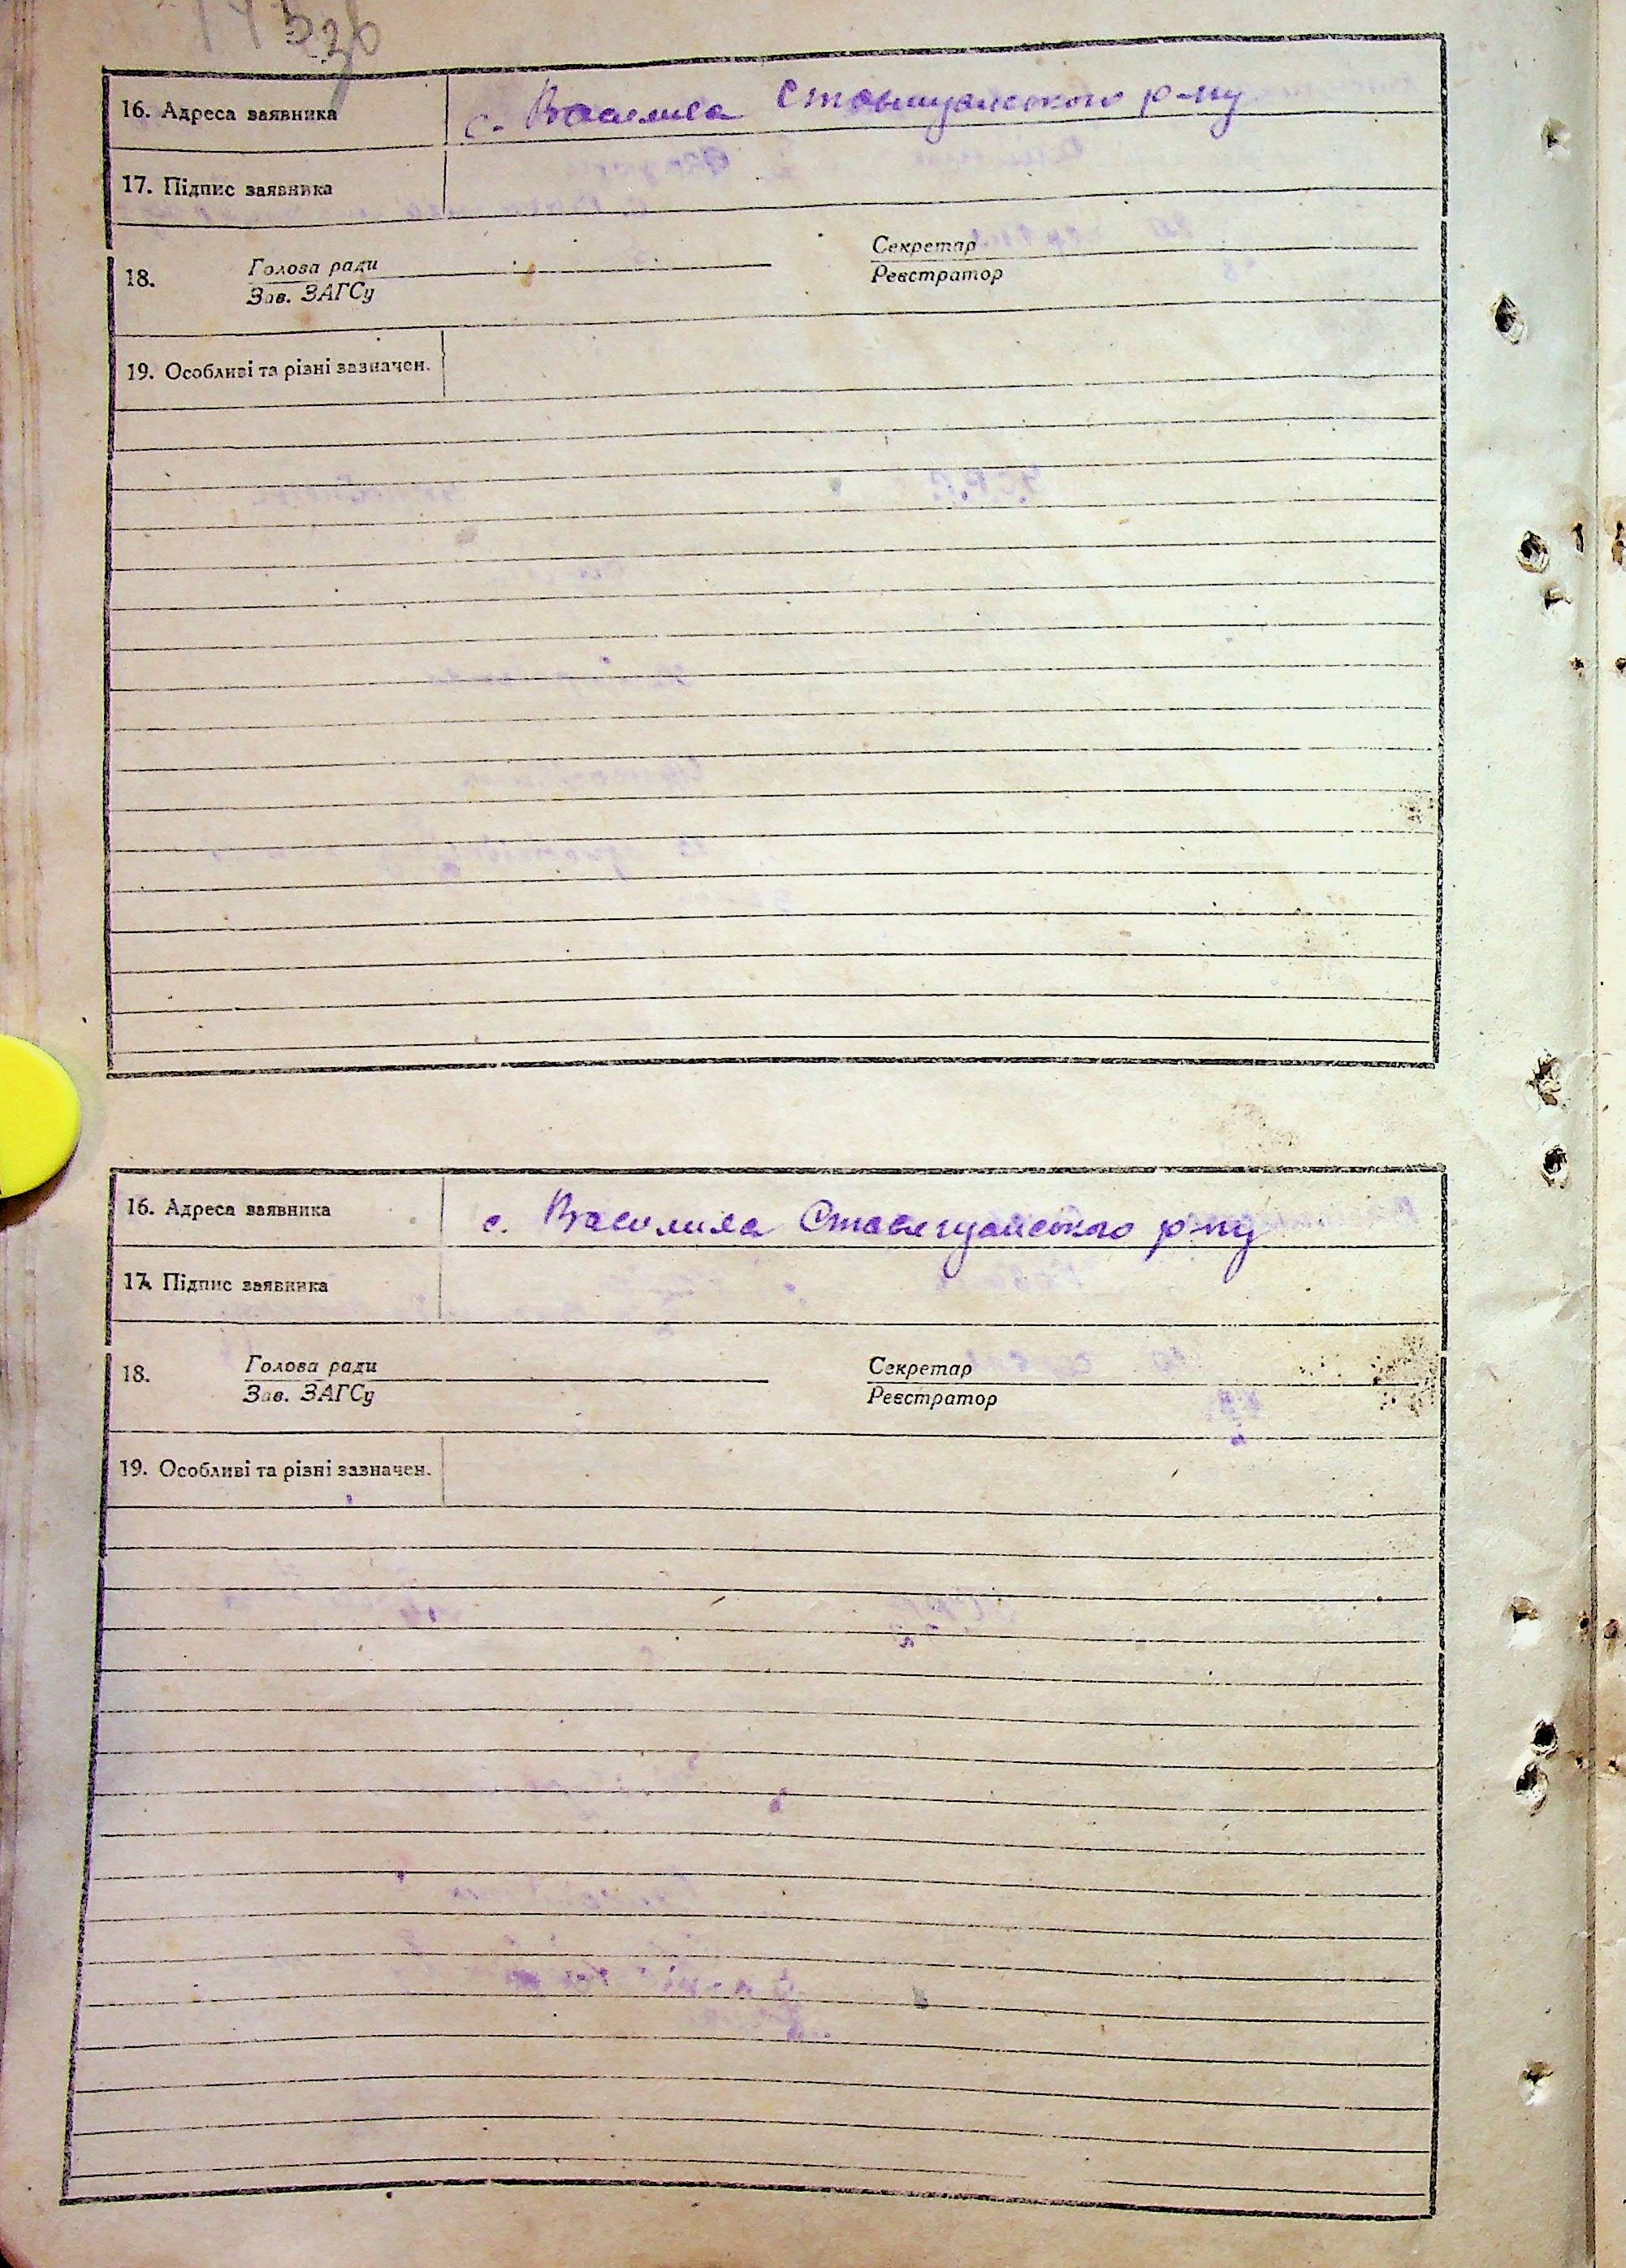 16. Адреса заявника с. Василиса Ставищанського р-ну
17. Підпис заявника
18. Голова ради Секретар
Зав. ЗАГСу Реєстратор
19. Особливі та різні зазначен.
16. Адреса заявника с. Василиса Ставищанського р-ну
17. Підпис заявника
18. Голова ради Секретар
Зав. ЗАГСу Реєстратор
19. Особливі та різні зазначен.